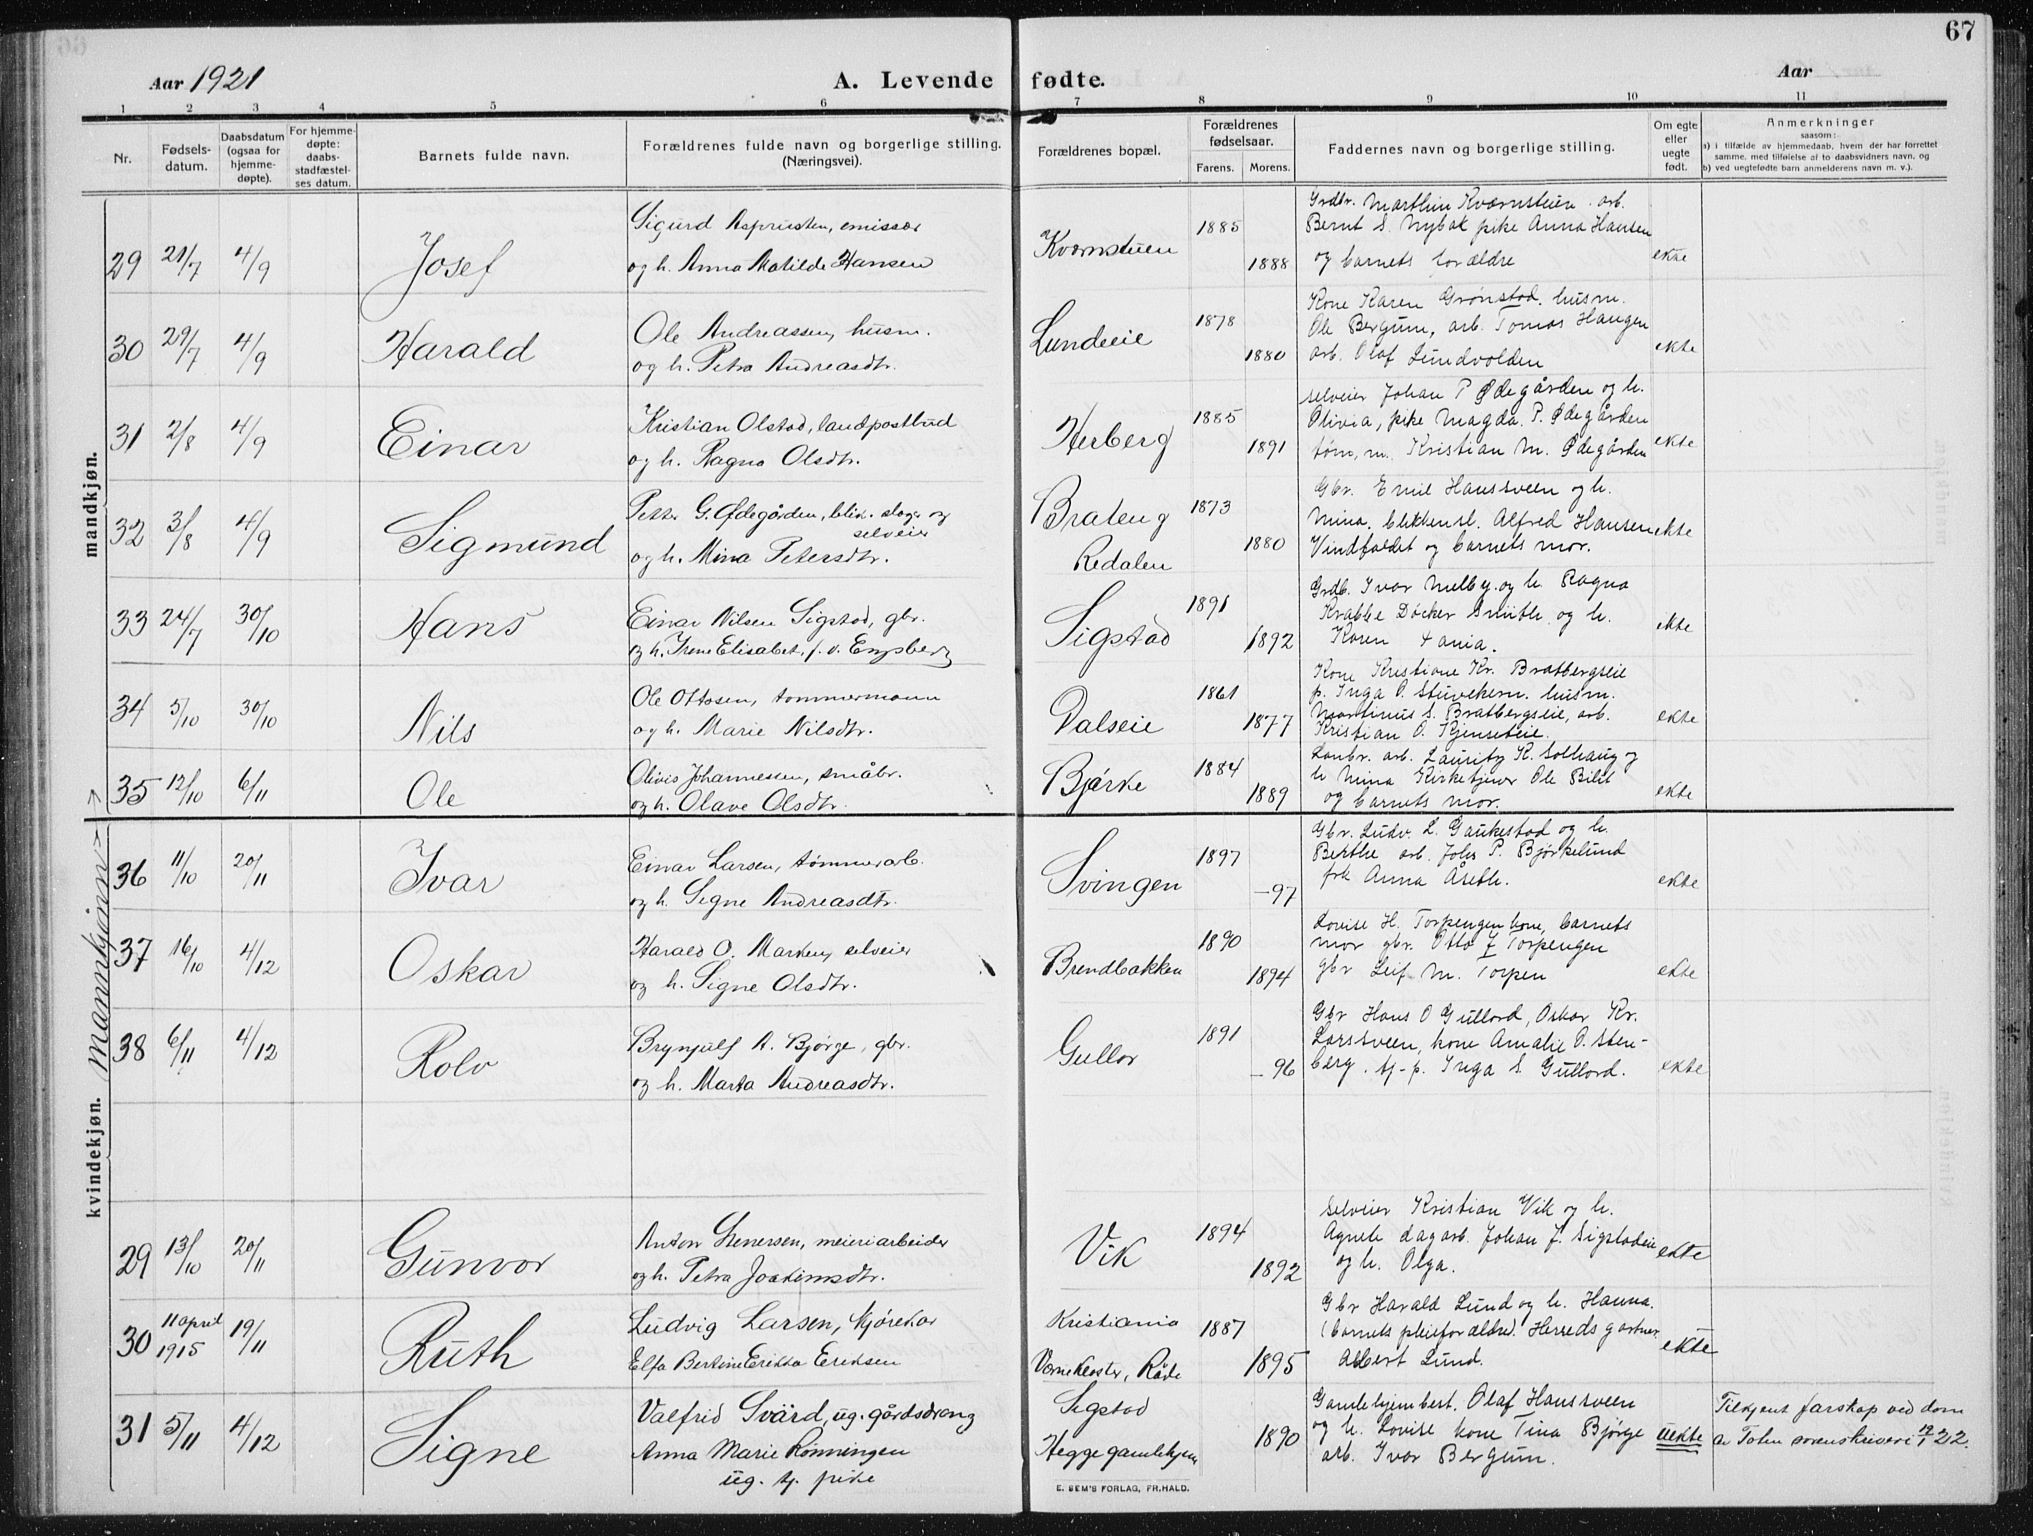 67
Aar 1921
A. Levende fødte.
Aar
1 2 3 4 5 6 7 8 9 10 11
Nr.
Fødsels-
datum.
Daabsdatum
(ogsaa for
hjemme-
døpte).
For hjemme-
døpte:
daabs-
stadfæstel-
ses datum.
Barnets fulde navn.
Forældrenes fulde navn og borgerlige stilling.
(Næringsvei).
Forældrenes bopæl.
Forældrenes
fødselsaar.
Farens. Morens.
Faddernes navn og borgerlige stilling.
Om egte
eller
uegte
født.
Anmerkninger
saasom:
a) i tilfælde av hjemmedaab, hvem der har forrettet
samme, med tilføielse af to daabsvidners navn, og
b) ved uegtefødte barn anmelderens navn m. v.).
mandkjøn.
Mannkjønn
kvindekjøn.
29 21/7 4/9 Josef
Sigurd Asprusten, emissær
og h. Anna Matilde Hansen
Kvernstuen 1885 1888
Grdbr. Marthin Kværnstuen arb.
Bernt S. Nybak pike Anna Hansen
og barnets forældre
ekte
30 29/7 4/9 Harald
Ole Andreassen, husm.
og h. Petra Andreasdtr.
Lundeeie 1878 1880
Kone Karen Grønstad, husm.
Ole Bergum, arb. Tomas Haugen
arb. Olaf Lundvolden
ekte
31 2/8 4/9 Einar
Kristian Olstad, landpostbud
og h. Ragna Olsdtr.
Herberg 1885 1891
selveier Johan P Ødegården og h.
Olivia, pike Magda P. Ødegården
tøm, m. Kristian M. Ødegården
ekte
32 3/8 4/9 Sigmund
Petter G. Ødegården, blik. slager og
selveier
og h. Mina Petersdtr.
Brateng
Redalen
1873 1880
Gbr. Emil Hansveen og h.
Mina, blikkensl. Alfred Hansen
Vindfaldet og barnets mor.
ekte
33 24/7 30/10 Hans
Einar Nilsen Sigstad, gbr.
og h. Irene Elisabet, f. v. Engsberg
Sigstad 1891 1892
Grdb. Ivar Melby og h. Ragna
Krabbe Døcker Smith og h.
Karen
ekte
34 5/10 30/10 Nils
Ole Ottosen, tømmermann
og h. Marie Nilsdtr.
Dalseie 1861 1877
Kone Kristiane Kr. Bratbergseie
p. Inga O. Stuvekern. husm.
Martinus S. Bratbergseie, arb.
Kristian O. Kjenseteie.
ekte
35 12/10 6/11 Ole
Olivis Johannessen, småbr.
og h. Olave Olsdtr.
Bjørke 1884 1889
arb. Lauritz K. Solhaug og
h Mina Kirketjener Ole Bilit
og barnets mor.
ekte
36 11/10 20/11 Ivar
Einar Larsen, tømmerarb.
og h. Signe Andreasdtr.
Svingen 1897 -97
Gbr. Ludv. L. Gaukestad og h.
Berthe arb. Johs P. Bjørkelund
frk Anna Åseth.
ekte
37 16/10 4/12 Oskar
Harald O. Marken, selveier
og h. Signe Olsdtr.
Brendbakken 1890 1894
Lovise H. Torpengen kone, barnets
mor gbr. Otto J Torpengen
gbr Leif M. Torpen
ekte
38 6/11 4/12 Rolv
Brynjulf A. Bjørge, gbr.
og h. Marta Andreasdtr.
Gullor 1891 -96
Gbr Hans O Gullord, Oskar Kr.
Larsveen, kone Amalie O. Sten-
berg. tj-p. Inga S. Gullord.
ekte
29 13/10 20/11 Gunvor
Anton Grenersen, meieriarbeider
og h. Petra Joakimsdtr.
Vik 1894 1892
selveier Kristian Vik og h.
Agnete dagarb. Johan J. Sigstadeie
og h. Olga.
ekte
30 11 april 1915 19/11 Ruth
Ludvig Larsen, kjørekar
Elfa Bertine Erikka Eriksen
Kristiania
Værnekloster, Råde
1887 1895
Gbr Harald Lund og h. Hanna.
(barnets pleieforældre). Herredsgartner
Albert Lund.
ekte
31 5/11 4/12 Signe
Valfrid Svärd, ug. gårdsdreng
Anna Marie Rønningen
ug. tj. pike
Sigstad
Hegge gamlehjem
1890
Gamlehjembest. Olaf Hansveen
og h. Lovise kone Tina Bjørge
arb. Ivar Bergum.
uekte
Tilkjent farskap ved dom
av Toten sorenskriveri 12/1 22.
E. SEM'S FORLAG, FR.HALD.